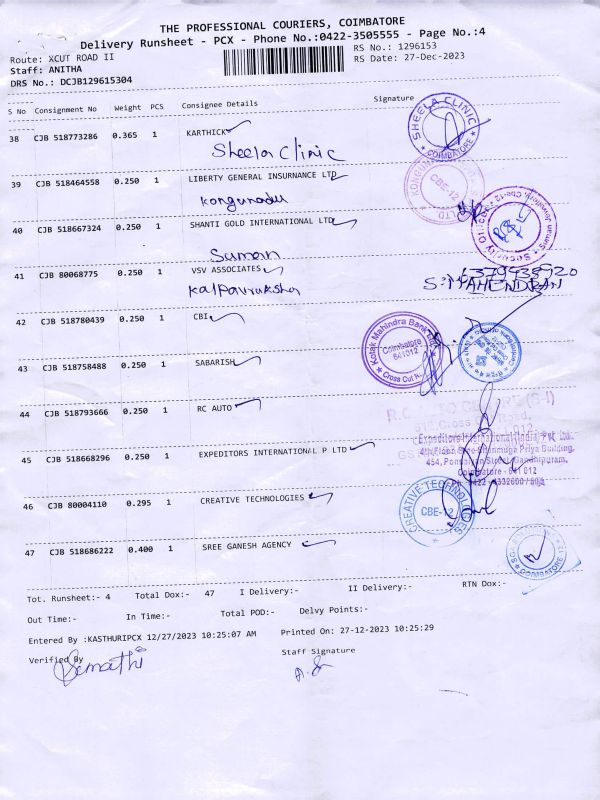 THE PROFESSIONAL COURIERS, COIMBATORE
Delivery Runsheet - PCX - Phone No.:0422-3505555 - Page No.:4
Route: XCUT ROAD II
RS No.: 1296153
Staff: ANITHA
RS Date: 27-Dec-2023
DRS No.: DCJB129615304
S No Consignment No Weight PCS Consignee Details Signature
38 CJB 518773286 0.365 1 KARTHICK
Sheela Clinic
SHEELA CLINIC
COIMBATORE
39 CJB 518464558 0.250 1 LIBERTY GENERAL INSURNANCE LTD
Kongunadu
CBE-12
40 CJB 518667324 0.250 1 SHANTI GOLD INTERNATIONAL LTD
Suman
41 CJB 80068775 0.250 1 VSV ASSOCIATES
Kalpavruksha
6379938920
S. MAHENDRAN
42 CJB 518780439 0.250 1 CBI
Kotak Mahindra Bank
Coimbatore
641012
Cross Cut
43 CJB 518758488 0.250 1 SABARISH
44 CJB 518793666 0.250 1 RC AUTO
45 CJB 518668296 0.250 1 EXPEDITORS INTERNATIONAL P LTD
Expeditors International (India) Pvt. Ltd.
4th Floor, Sree Shanmuga Priya Building,
454, Ponnaiyan Street, Gandhipuram,
Coimbatore - 641 012
46 CJB 80004110 0.295 1 CREATIVE TECHNOLOGIES
CREATIVE TECHNOLOGIES
CBE-12
47 CJB 518686222 0.400 1 SREE GANESH AGENCY
COIMBATORE
Tot. Runsheet:- 4 Total Dox:- 47 I Delivery:- II Delivery:- RTN Dox:-
Out Time:- In Time:- Total POD:- Delvy Points:-
Entered By :KASTHURIPCX 12/27/2023 10:25:07 AM Printed On: 27-12-2023 10:25:29
Verified By Staff Signature